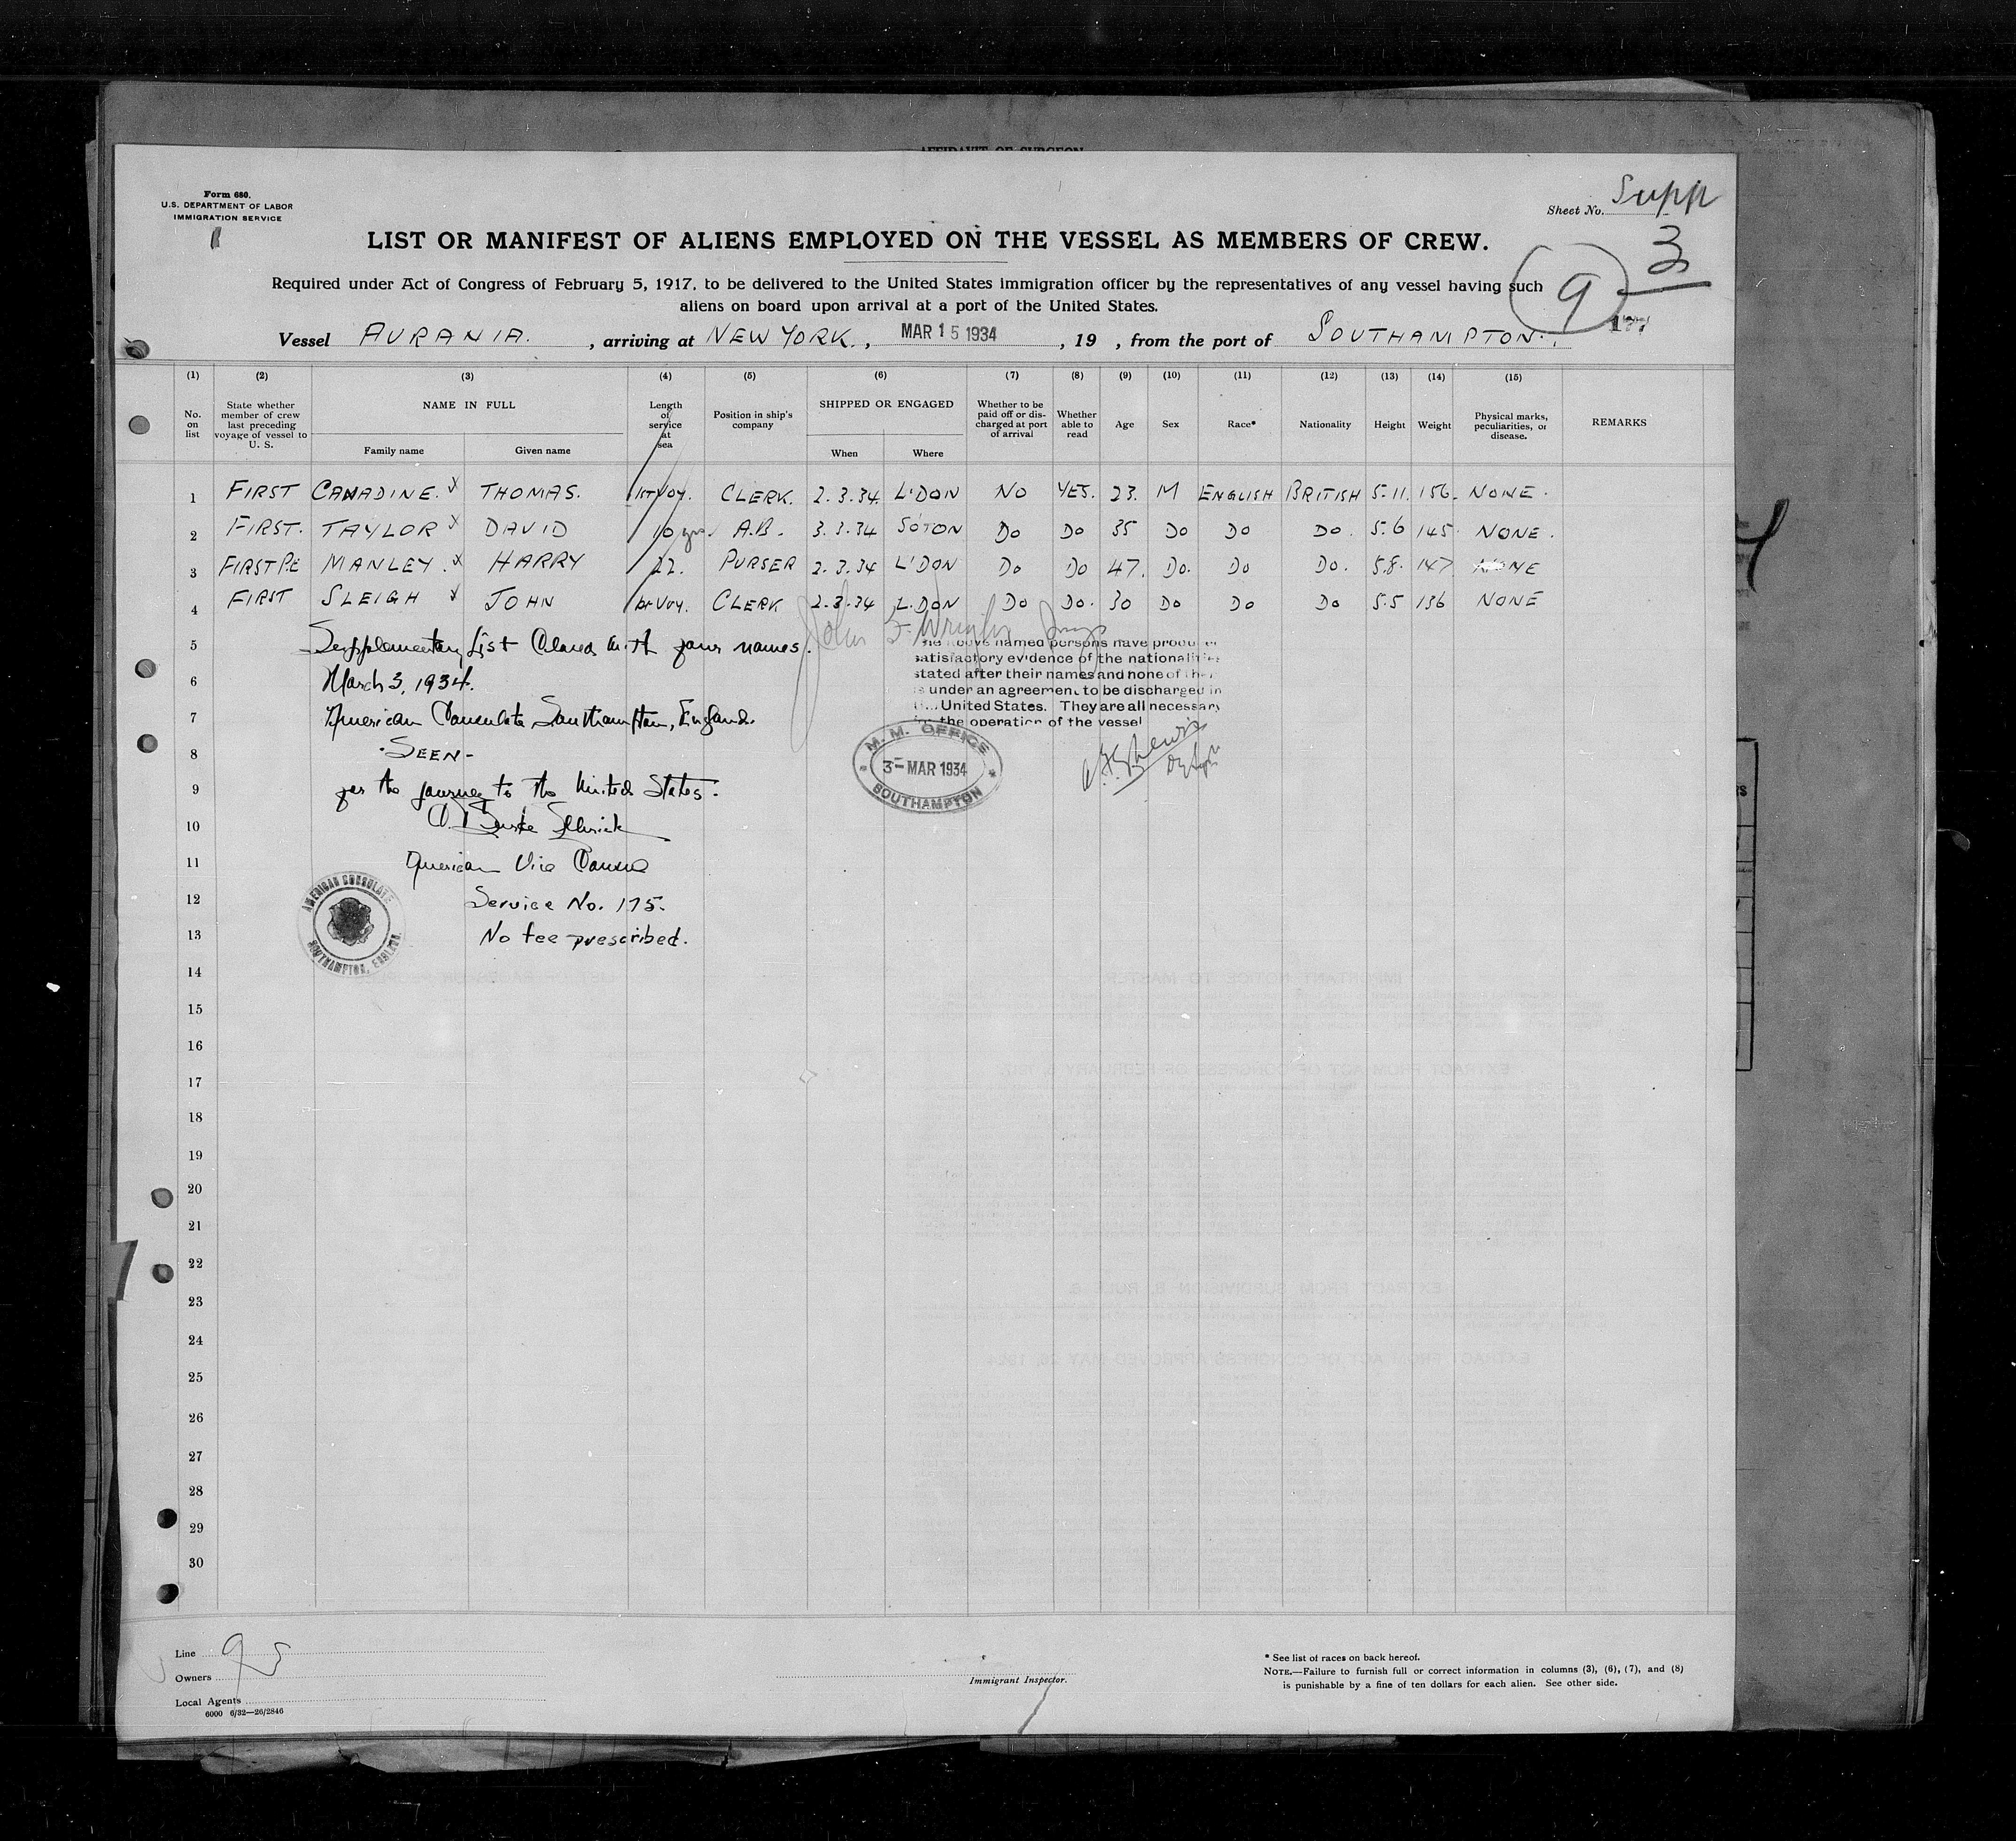 AFFIDAVIT OF SURGEON
Form 680.
U.S. DEPARTMENT OF LABOR
IMMIGRATION SERVICE
Sheet No. Supp
3
9
LIST OR MANIFEST OF ALIENS EMPLOYED ON THE VESSEL AS MEMBERS OF CREW.
Required under Act of Congress of February 5, 1917, to be delivered to the United States immigration officer by the representatives of any vessel having such
aliens on board upon arrival at a port of the United States.
177
Vessel AURANIA. , arriving at NEW YORK. , MAR 15 1934 , 19 , from the port of SOUTHAMPTON.
(1) (2) (3) (4) (5) (6) (7) (8) (9) (10) (11) (12) (13) (14) (15)
No. on list State whether member of crew last preceding voyage of vessel to U. S. NAME IN FULL Family name Given name Length of service at sea Position in ship's company SHIPPED OR ENGAGED When Where Whether to be paid off or discharged at port of arrival Whether able to read Age Sex Race* Nationality Height Weight Physical marks, peculiarities, or disease. REMARKS
1 FIRST CANADINE. x THOMAS. 1ST VOY. CLERK. 2.3.34. L'DON NO YES. 23. M ENGLISH BRITISH 5-11. 156. NONE.
2 FIRST. TAYLOR x DAVID 10 yrs. A.B. 3.3.34 SOTON DO DO 35 DO DO DO. 5.6 145. NONE.
3 FIRST P.E MANLEY. x HARRY 22. PURSER 2.3.34 L'DON DO DO 47. DO. DO DO. 5.8. 147 NONE
4 FIRST SLEIGH x JOHN 1st Voy. CLERK 2.3.34 L.DON DO DO. 30 DO DO DO 5.5 136 NONE
5 Supplementary List Closed with four names.
The above named persons have produced
satisfactory evidence of the nationalities
stated after their names and none of them
is under an agreement to be discharged in
the United States. They are all necessary
for the operation of the vessel
6 March 3, 1934.
7 American Consulate Southampton, England.
8 -SEEN-
M.M. OFFICE
3 - MAR 1934
SOUTHAMPTON
9 for the journey to the United States.
10
11 American Vice Consul
12 Service No. 175.
13 No fee prescribed.
AMERICAN CONSULATE
SOUTHAMPTON, ENGLAND.
14
15
16
17
18
19
20
21
22
23
24
25
26
27
28
29
30
Line
Owners
Local Agents
6000 6/32—26/2846
Immigrant Inspector.
* See list of races on back hereof.
NOTE.—Failure to furnish full or correct information in columns (3), (6), (7), and (8)
is punishable by a fine of ten dollars for each alien. See other side.